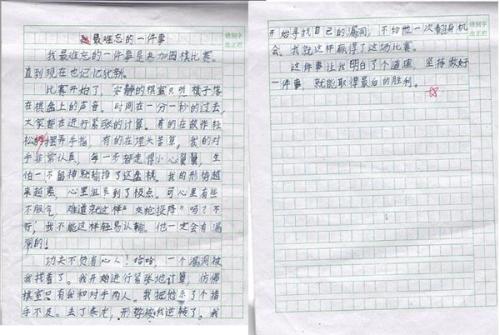 最难忘的一件事
我最难忘的一件事是参加围棋比赛。
直到现在也记忆犹新。
比赛开始了，安静的棋室只听棋子落
在棋盘上的声音。时间在一分一秒的过去，
大家都在进行紧张的计算。有的在故作轻
松的摆弄手指，有的在埋头苦算。我的对
手非常认真，每一步都走得小心翼翼，生
怕一不留神就输掉了这盘棋。我的形势越
来越差，心里沮丧到了极点。可心里有些
不服气，难道就这样“束手就擒”吗？不
行，我不能这样轻易认输。他一定会有漏
洞的！
功夫不负有心人！哈哈，一个漏洞被
我找着了。我开始进行紧张地计算，仿佛
棋室只有我和对手两人。我把他杀了个措
手不及。去了劣龙，形势被我逆转了。我
开始寻找自己的漏洞，不给他一次翻身机
会。我就这样赢得了这场比赛。
这件事让我明白了个道理，坚持做好
一件事，就能取得最后的胜利。